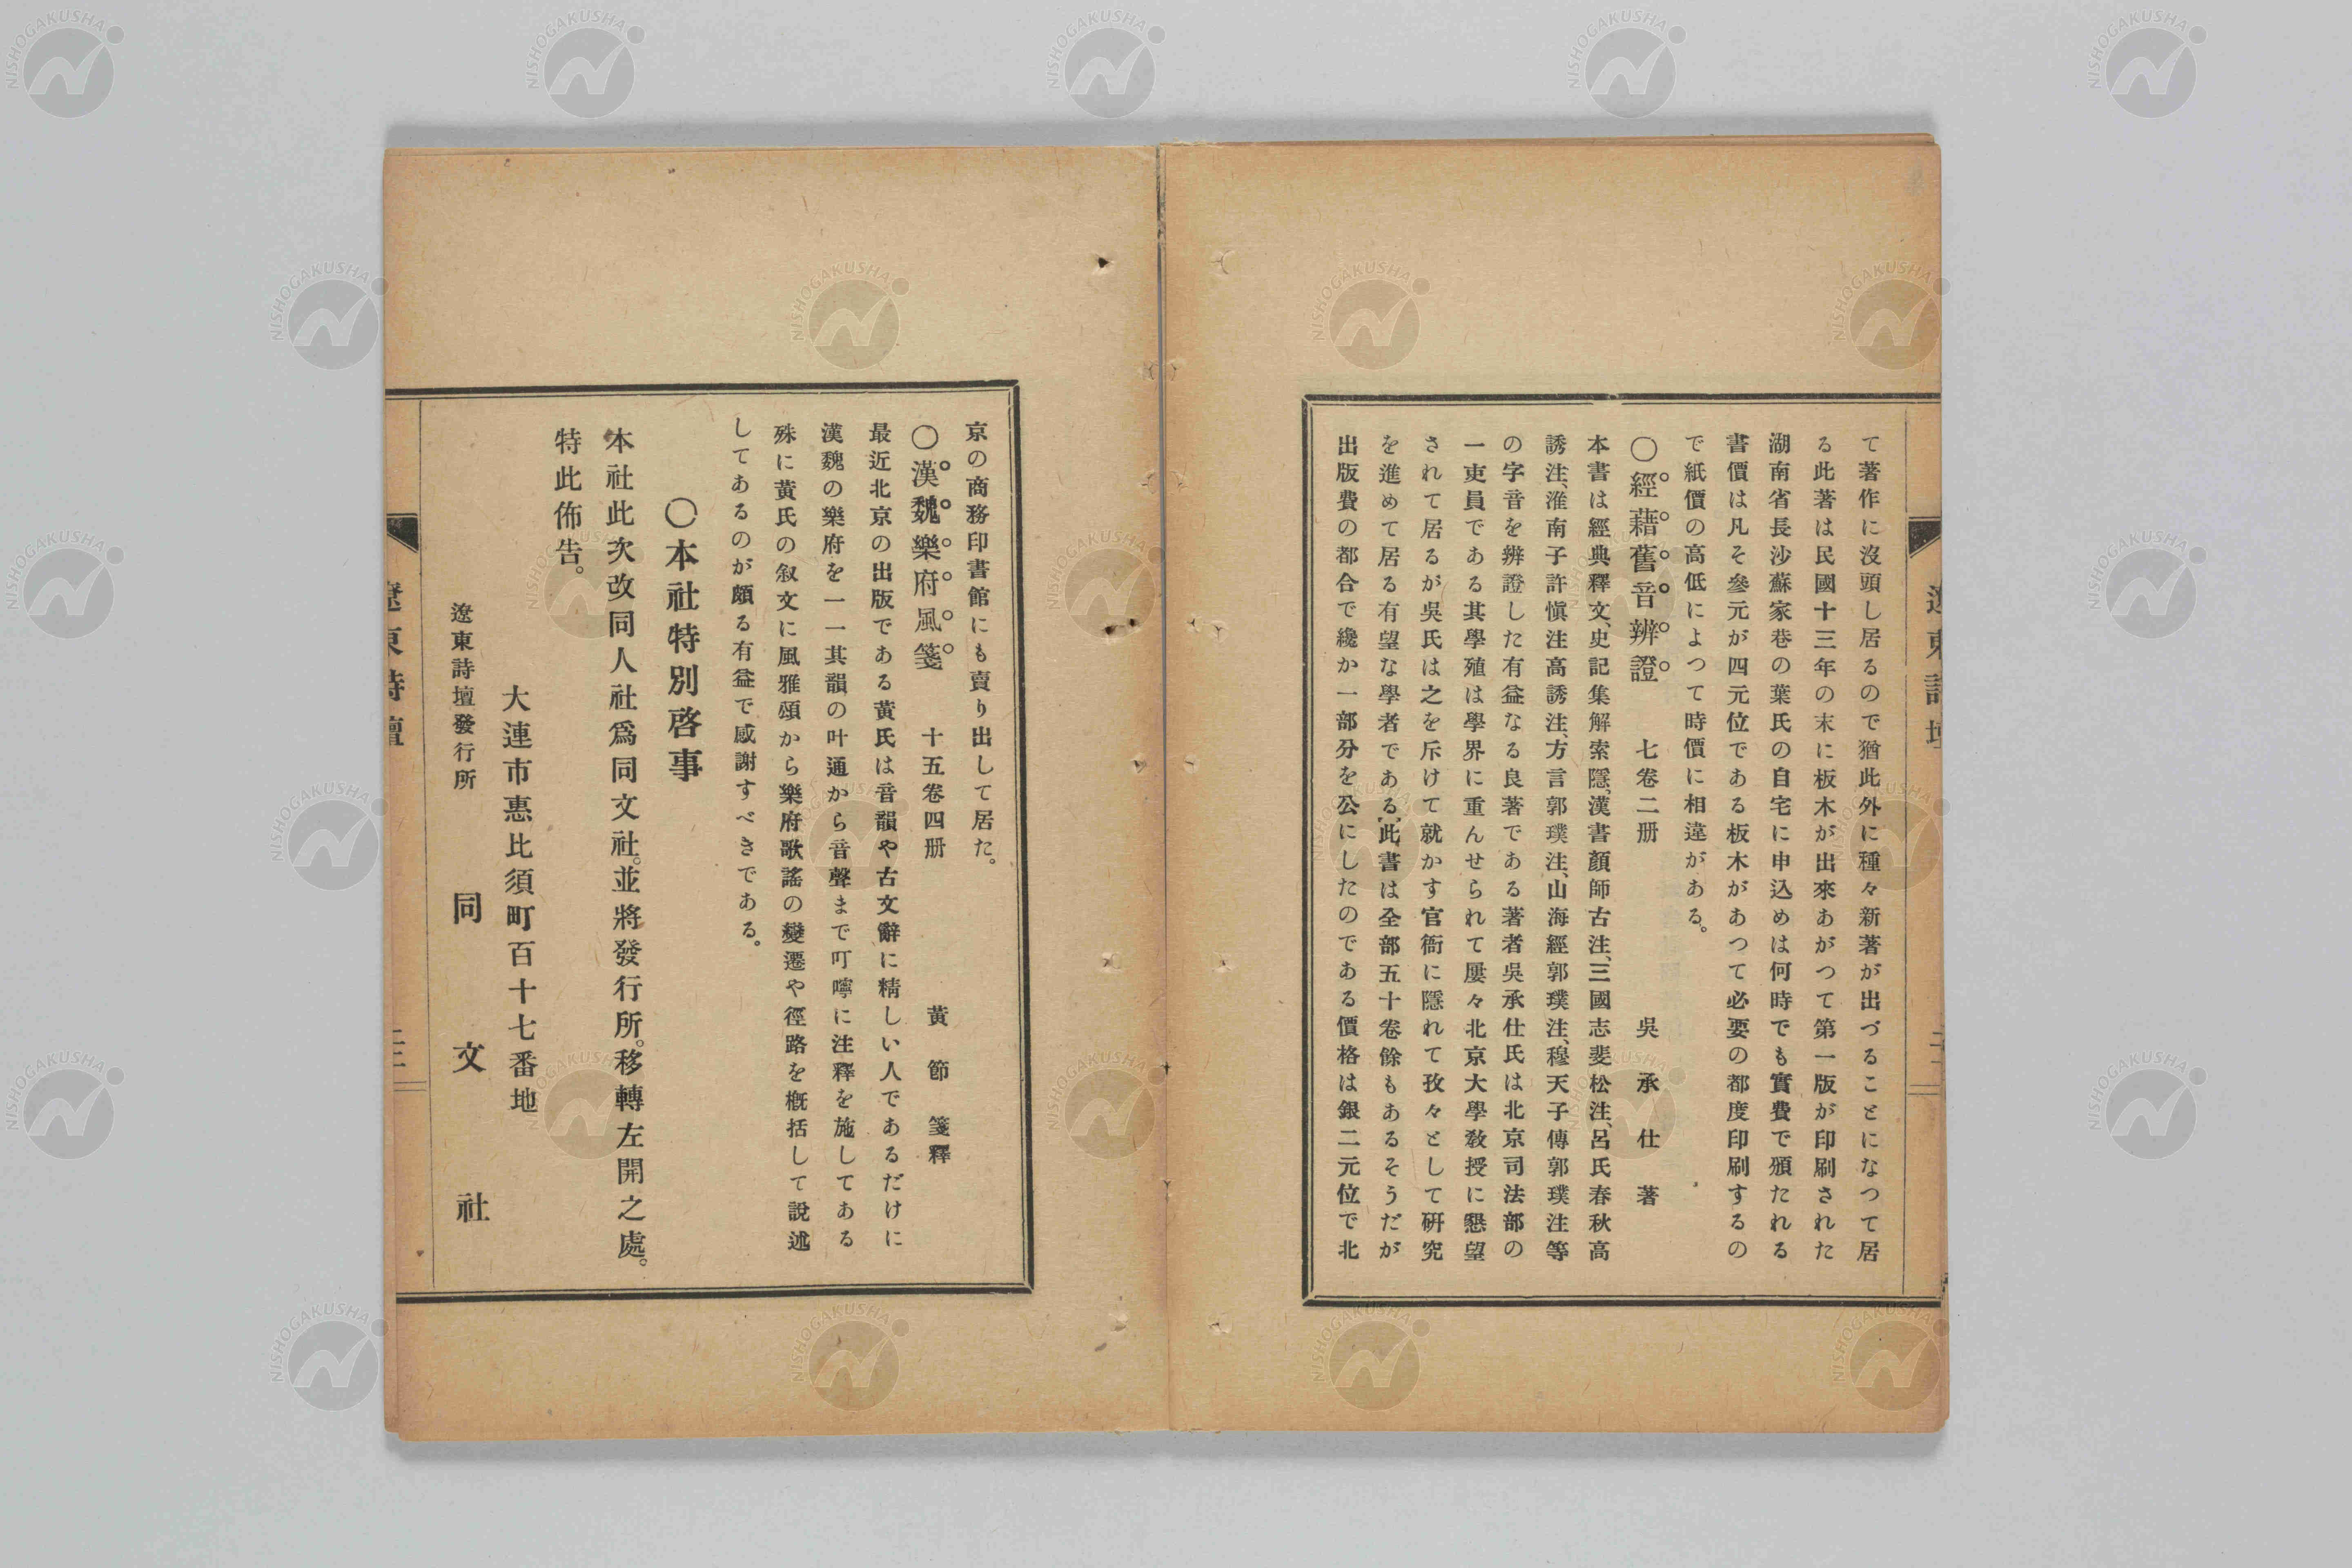 て著作に沒頭し居るので猶此外に種々新著が出づることになつて居
る此著は民國十三年の末に板木が出來あがつて第一版が印刷された
湖南省長沙蘇家巷の葉氏の自宅に申込めは何時でも實費で頒たれる
書價は凡そ參元が四元位である板木があつて必要の都度印刷するの
で紙價の高低によつて時價に相違がある。
〇經藉舊音辨證 七卷二册 吳承仕著
本書は經典釋文、史記集解索隱、漢書顏師古注、三國志斐松注、呂氏春秋高
誘注、淮南子許愼注高誘注、方言郭璞注、山海經郭璞注、穆天子傳郭璞注等
の字音を辨證した有益なる良著である著者吳承仕氏は北京司法部の
一吏員である其學殖は學界に重んせられて屢々北京大學敎授に懇望
されて居るが吳氏は之を斥けて就かす官衙に隱れて孜々として硏究
を進めて居る有望な學者である、此書は全部五十卷餘もあるそうだが
出版費の都合で纔か一部分を公にしたのである價格は銀二元位で北
京の商務印書館にも賣り出して居た。
〇漢魏樂府風箋 十五卷四册 黃節箋釋
最近北京の出版である黃氏は音韻や古文辭に精しい人であるだけに
漢魏の樂府を一一其韻の叶通から音聲まで叮嚀に注釋を施してある
殊に黃氏の叙文に風雅頌から樂府歌謠の變遷や徑路を槪括して說述
してあるのが頗る有益で感謝すべきである。
〇本社特別啓事
本社此次改同人社爲同文社。並將發行所。移轉左開之處。
特此佈告。
大連市惠比須町百十七番地
遼東詩壇發行所 同文社
遼東詩壇